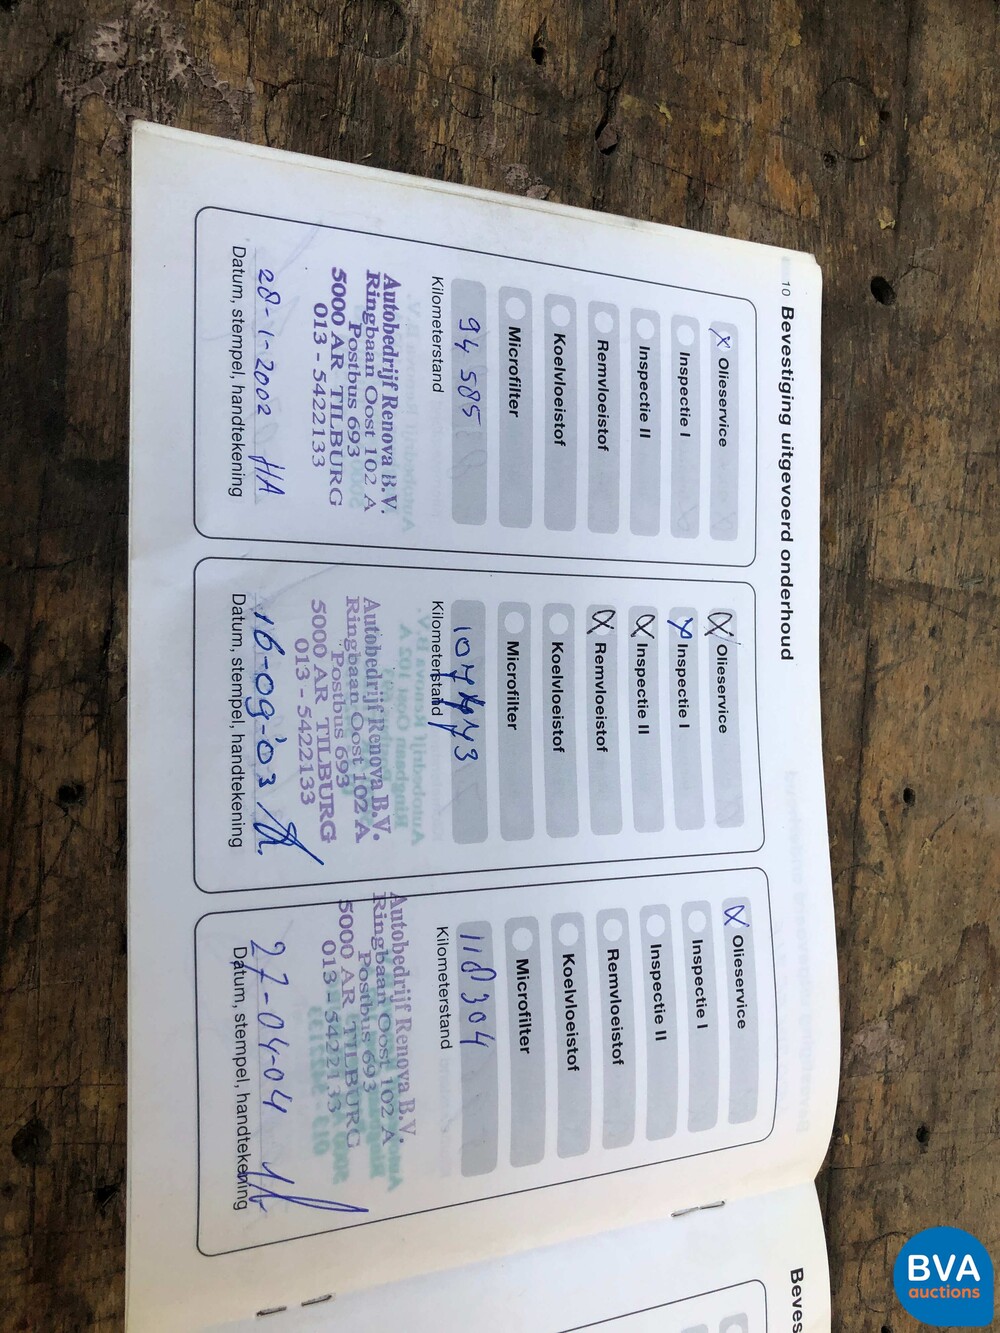 10 Bevestiging uitgevoerd onderhoud
X Olieservice
Inspectie I
Inspectie II
Remvloeistof
Koelvloeistof
Microfilter
94 585
Kilometerstand
Autobedrijf Renova B.V.
Ringbaan Oost 102 A
Postbus 693
5000 AR TILBURG
013 - 5422133
28-1-2002 HA
Datum, stempel, handtekening
X Olieservice
X Inspectie I
X Inspectie II
X Remvloeistof
Koelvloeistof
Microfilter
Kilometerstand
Autobedrijf Renova B.V.
Ringbaan Oost 102 A
Postbus 693
5000 AR TILBURG
013 - 5422133
16-09-'03
Datum, stempel, handtekening
X Olieservice
Inspectie I
Inspectie II
Remvloeistof
Koelvloeistof
Microfilter
118304
Kilometerstand
Autobedrijf Renova B.V.
Ringbaan Oost 102 A
Postbus 693
5000 AR TILBURG
013 - 5422133
27-04-04
Datum, stempel, handtekening
Beves
BVA
auctions